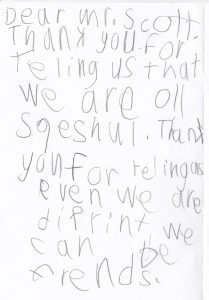 Dear mr. Scott.
Thank you for
teling us that
we are oll
speshul. Thank
you for telingas
even we are
difrint we
can be
frends.